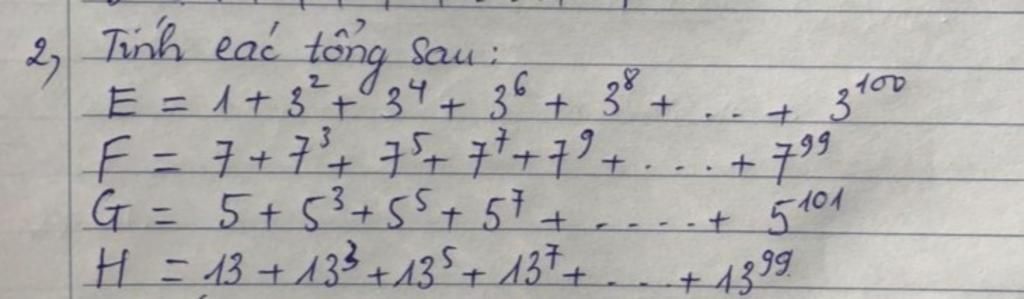 2, Tính các tổng sau:
E = 1 + 3² + 3⁴ + 3⁶ + 3⁸ + ... + 3¹⁰⁰
F = 7 + 7³ + 7⁵ + 7⁷ + 7⁹ + .... + 7⁹⁹
G = 5 + 5³ + 5⁵ + 5⁷ + ..... + 5¹⁰¹
H = 13 + 13³ + 13⁵ + 13⁷ + .... + 13⁹⁹